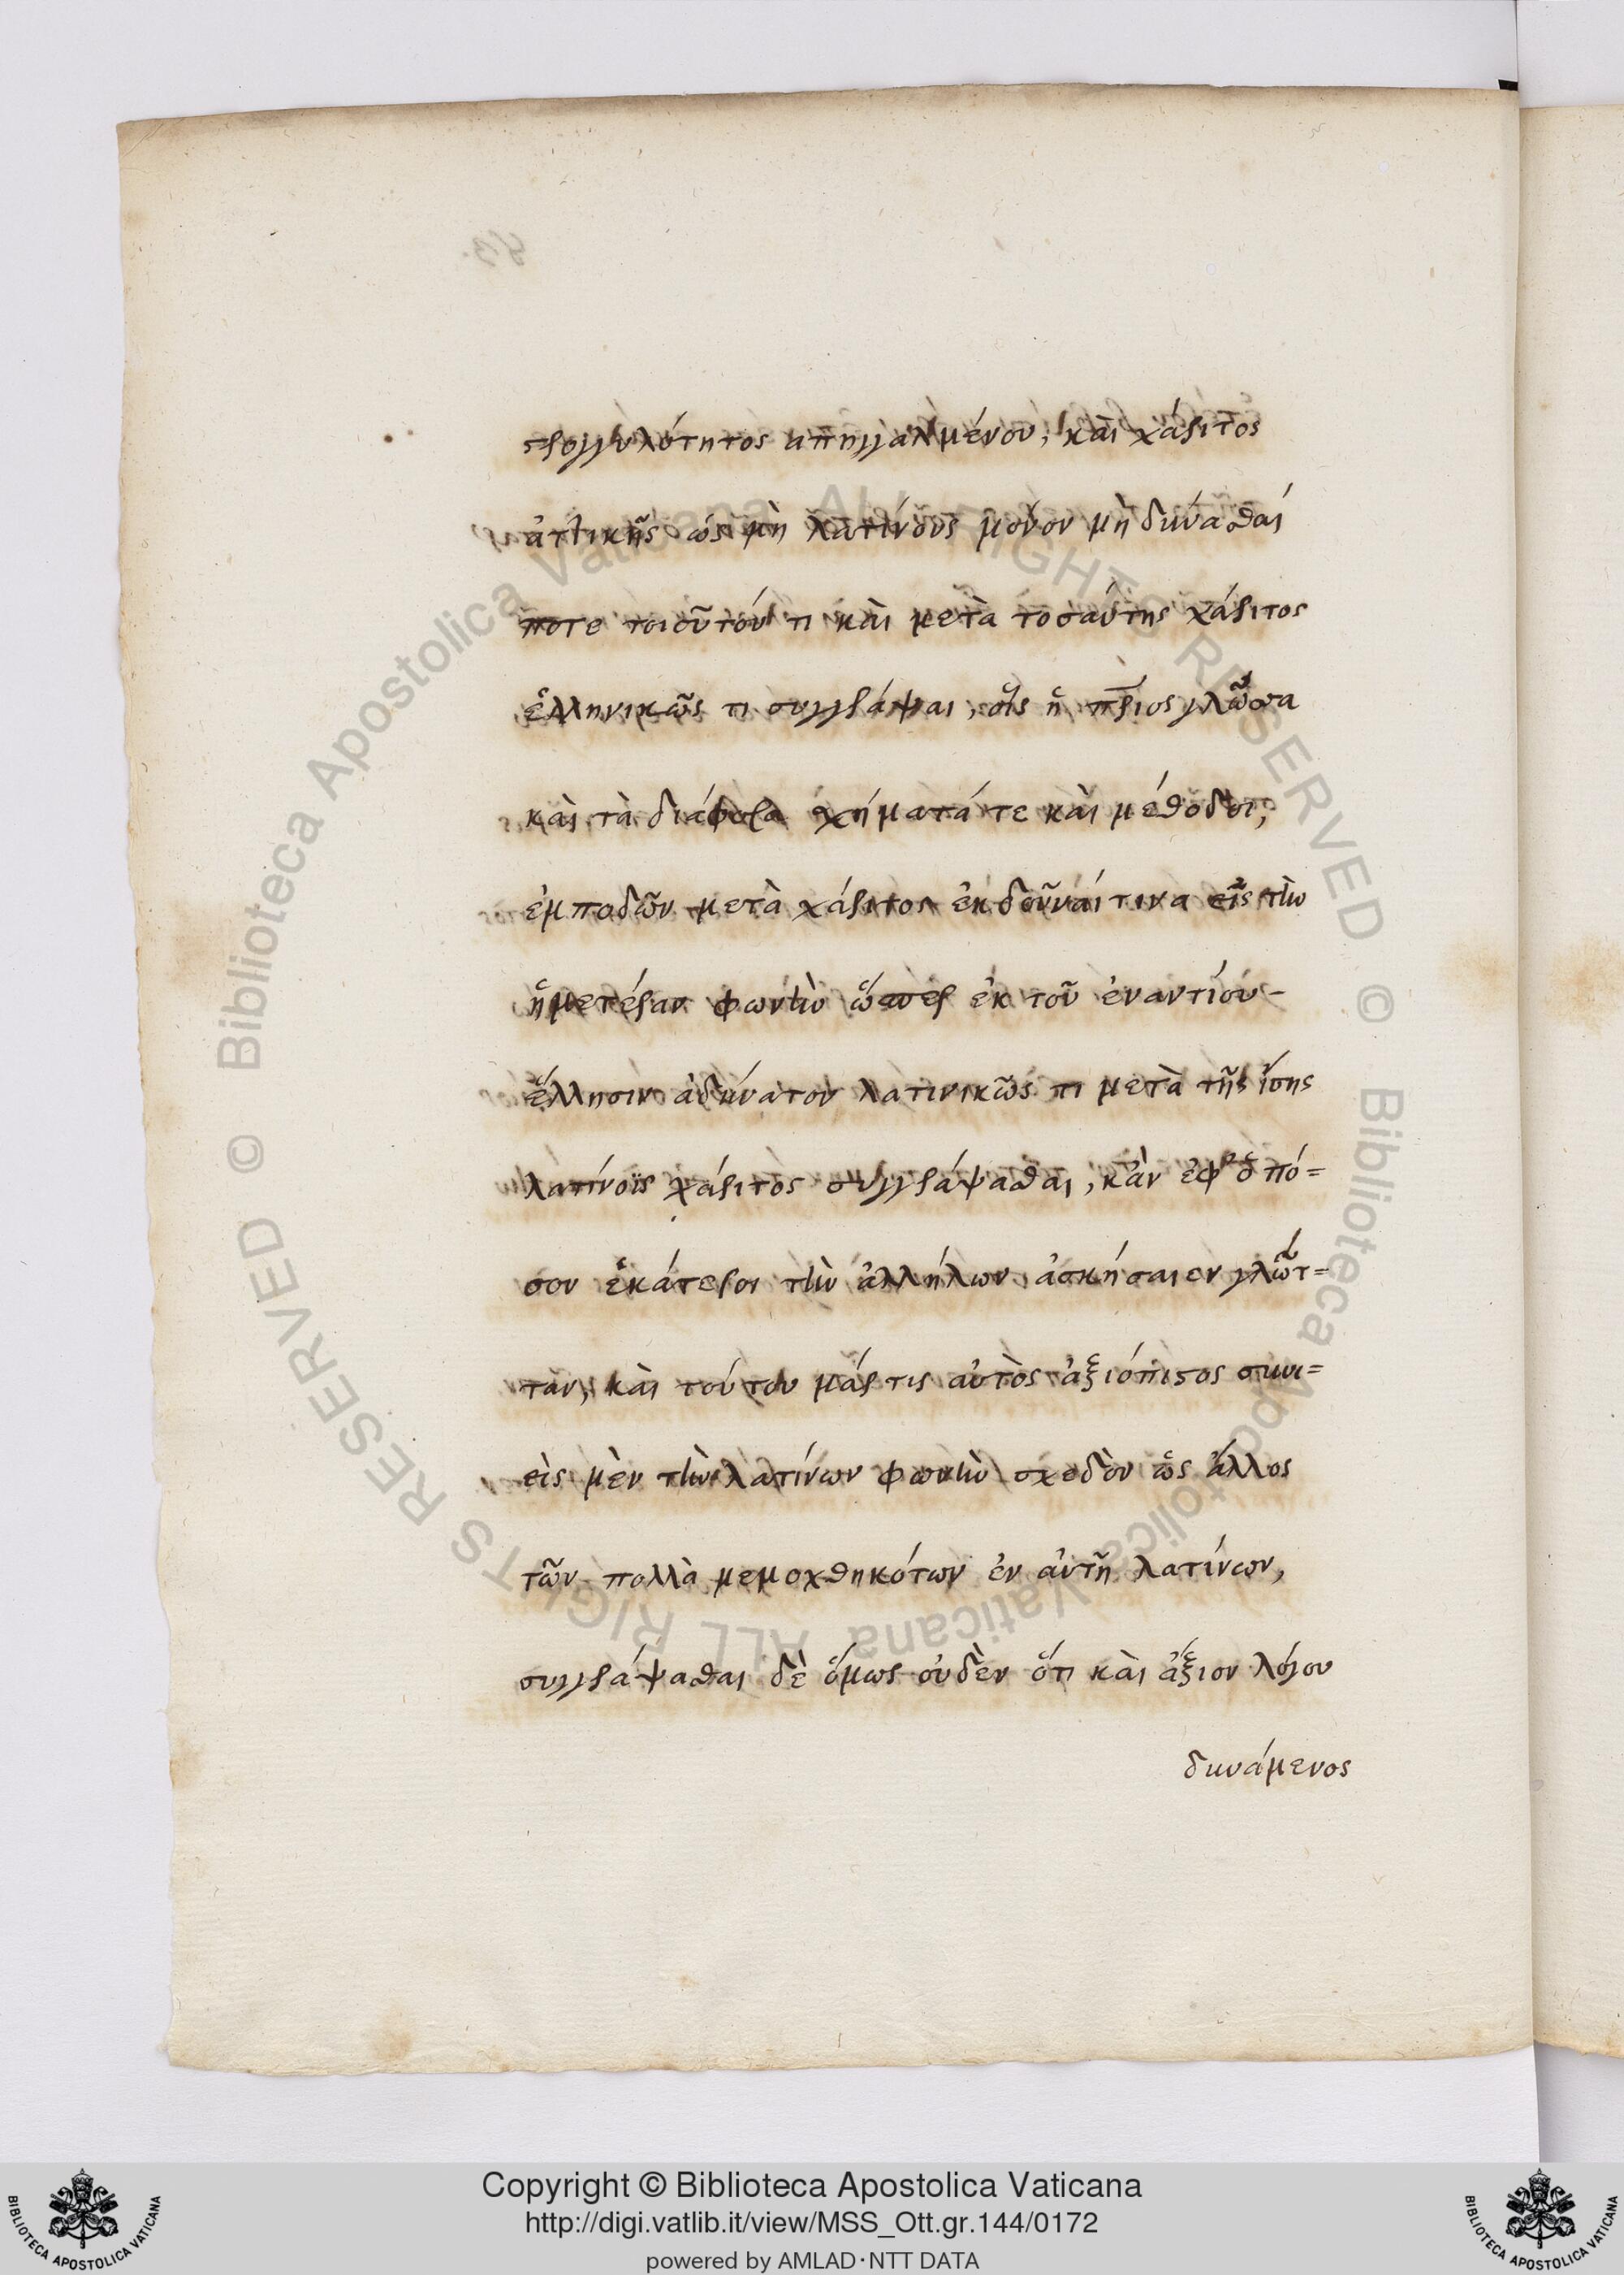 στρογγυλότητος ἀπηλλαγμένου, καὶ χάριτος
ἀττικῆς ὡς μὴ λατίνους μόνον μὴ δύνασθαί
ποτε τοιοῦτόν τι καὶ μετὰ τοσαύτης χάριτος
ἑλληνικῶς τι συγγράψαι, οἷς ἡ πριος γλῶσσα
καὶ τὰ διάφορα σχήματά τε καὶ μέθοδοι,
ἐμποδῶν μετὰ χάριτος ἐκδοῦναί τινα εἰς τὴν
ἡμετέραν φωνὴν ὥσπερ ἐκ τοῦ ἐναντίου-
ἕλλησιν ἀδύνατον λατινικῶς τι μετὰ τῆς ἴσης
λατίνοις χάριτος συγγράψασθαι, κἀν ἐφ' ὁπό=
σον ἑκάτεροι τὴν ἀλλήλων ἀσκήσαιεν γλῶτ=
ταν, καὶ τούτου μάρτις αὐτὸς ἀξιόπιστος συνι=
εὶς μὲν τὴν λατίνων φωνὴν σχεδὸν ὡς ἄλλος
τῶν πολλὰ μεμοχθηκότων ἐν αὐτῇ λατίνων,
συγγράψασθαι δὲ ὅμως οὐδὲν ὅτι καὶ ἄξιον λόγου
δυνάμενος
Copyright © Biblioteca Apostolica Vaticana
http://digi.vatlib.it/view/MSS_Ott.gr.144/0172
powered by AMLAD·NTT DATA
BIBLIOTECA APOSTOLICA VATICANA
BIBLIOTECA APOSTOLICA VATICANA
© Biblioteca Apostolica Vaticana ALL RIGHTS RESERVED
© Biblioteca Apostolica Vaticana ALL RIGHTS RESERVED